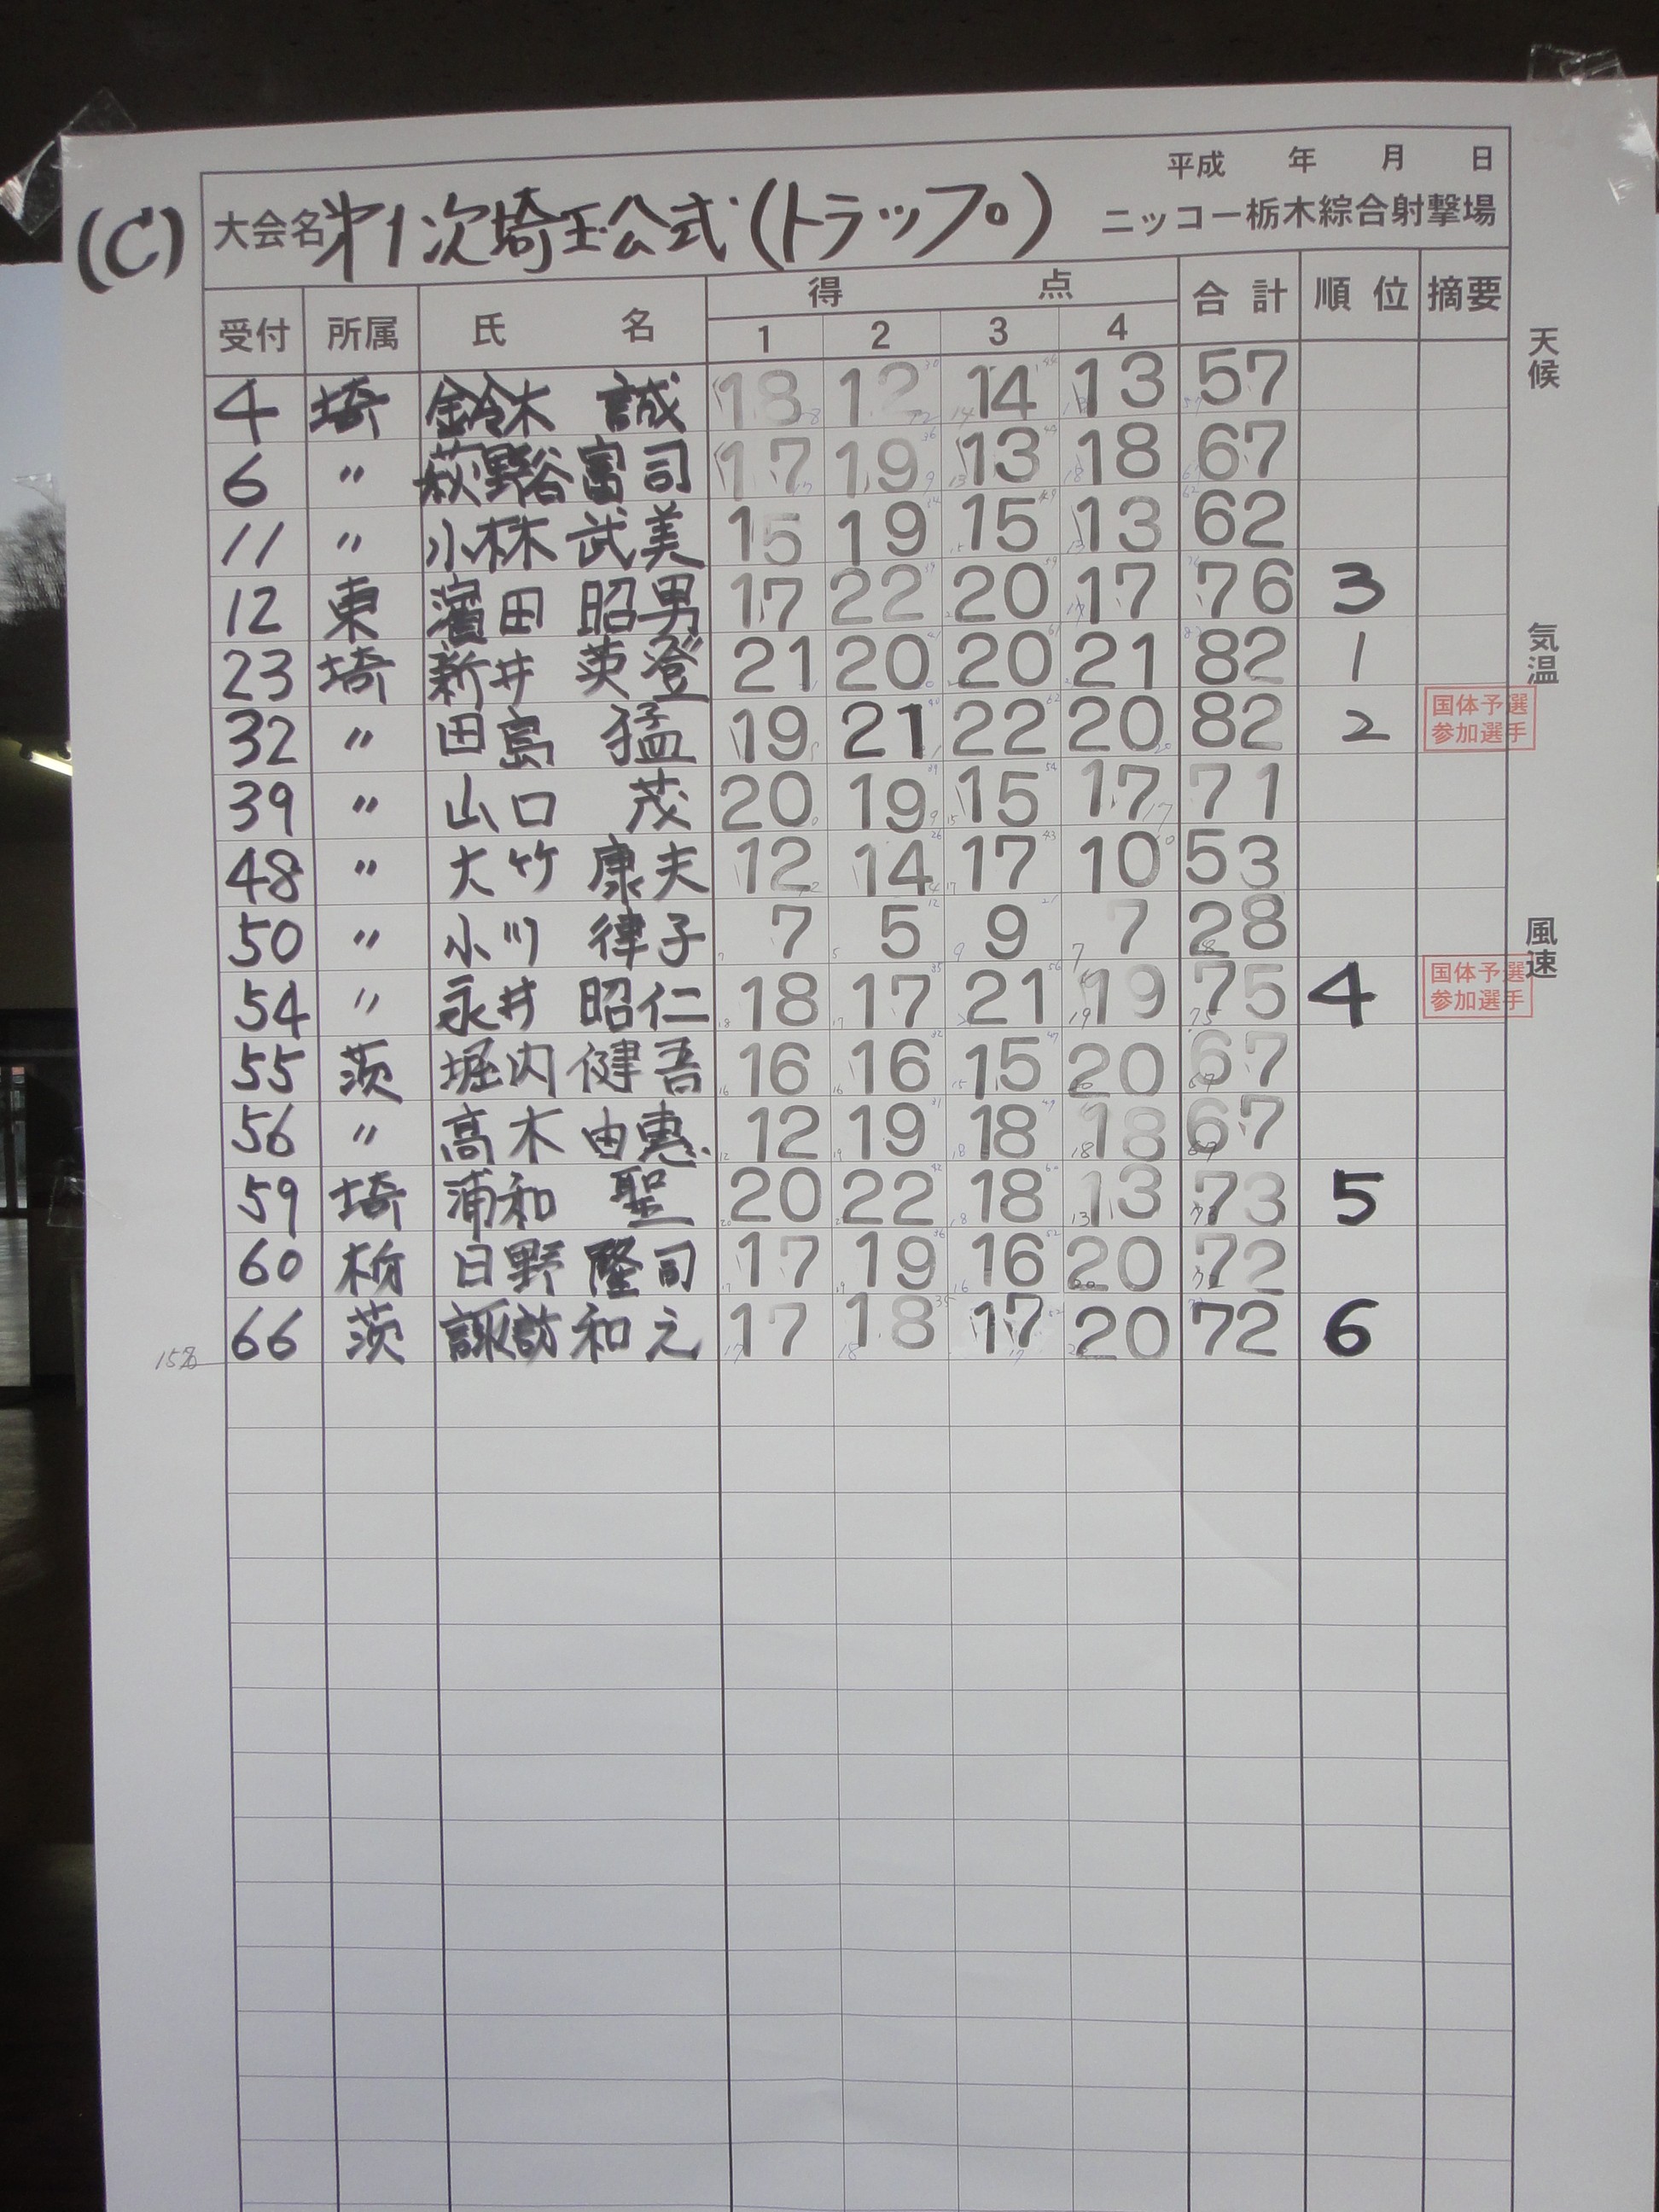 平成 年 月 日
(C) 大会名 第1次埼玉公式(トラップ) ニッコー栃木綜合射撃場
受付 所属 氏 名 得 点 合計 順位 摘要
1 2 3 4
天候
4 埼 鈴木 誠 18 12 14 13 57
6 〃 萩野谷富司 17 19 13 18 67
11 〃 小林 武美 15 19 15 13 62
12 東 濱田 昭男 17 22 20 17 76 3
気温
23 埼 新井 英登 21 20 20 21 82 1
32 〃 田島 猛 19 21 22 20 82 2 国体予選
参加選手
39 〃 山口 茂 20 19 15 17 71
48 〃 大竹 康夫 12 14 17 10 53
50 〃 小川 律子 7 5 9 7 28
風速
54 〃 永井 昭仁 18 17 21 19 75 4 国体予選
参加選手
55 茨 堀内 健吾 16 16 15 20 67
56 〃 高木 由惠 12 19 18 18 67
59 埼 浦和 聖 20 22 18 13 73 5
60 栃 日野 隆司 17 19 16 20 72
66 茨 諏訪 和元 17 18 17 20 72 6